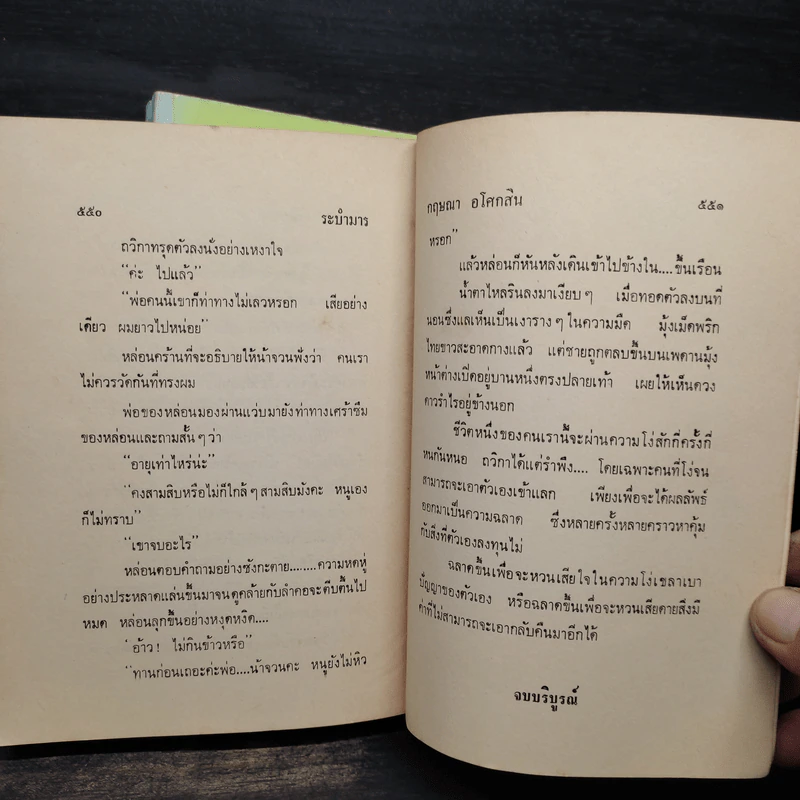 ๕๕๐ ระบำมาร
ถวิกาทรุดตัวลงนั่งอย่างเหงาใจ
“ค่ะ ไปแล้ว”
“พ่อคนนี้เขาก็ท่าทางไม่เลวหรอก เสียอย่าง
เดียว ผมยาวไปหน่อย”
หล่อนคร้านที่จะอธิบายให้น้าจวนฟังว่า คนเรา
ไม่ควรวัดกันที่ทรงผม
พ่อของหล่อนมองผ่านแว่บมายังท่าทางเศร้าซึม
ของหล่อนและถามสั้น ๆ ว่า
“อายุเท่าไหร่น่ะ”
“คงสามสิบหรือไม่ก็ใกล้ ๆ สามสิบมังคะ หนูเอง
ก็ไม่ทราบ”
“เขาจบอะไร”
หล่อนตอบคำถามอย่างซังกะตาย........ความหดหู่
อย่างประหลาดแล่นขึ้นมาจนดูคล้ายกับลำคอจะตีบตื้นไป
หมด หล่อนลุกขึ้นอย่างหงุดหงิด....
“อ้าว! ไม่กินข้าวหรือ”
“ทานก่อนเถอะค่ะพ่อ....น้าจวนคะ หนูยังไม่หิว
กฤษณา อโศกสิน ๕๕๑
หรอก”
แล้วหล่อนก็หันหลังเดินเข้าไปข้างใน....ขึ้นเรือน
น้ำตาไหลรินลงมาเงียบ ๆ เมื่อทอดตัวลงบนที่
นอนซึ่งแลเห็นเป็นเงาราง ๆ ในความมืด มุ้งเม็ดพริก
ไทยขาวสะอาดกางแล้ว แต่ชายถูกตลบขึ้นบนเพดานมุ้ง
หน้าต่างเปิดอยู่บานหนึ่งตรงปลายเท้า เผยให้เห็นดวง
ดาวรำไรอยู่ข้างนอก
ชีวิตหนึ่งของคนเรานี้จะผ่านความโง่สักกี่ครั้งกี่
หนกันหนอ ถวิกาได้แต่รำพึง.... โดยเฉพาะคนที่โง่จน
สามารถจะเอาตัวเองเข้าแลก เพียงเพื่อจะได้ผลลัพธ์
ออกมาเป็นความฉลาด ซึ่งหลายครั้งหลายคราวหาคุ้ม
กับสิ่งที่ตัวเองลงทุนไม่
ฉลาดขึ้นเพื่อจะหวนเสียใจในความโง่เขลาเบา
ปัญญาของตัวเอง หรือฉลาดขึ้นเพื่อจะหวนเสียดายสิ่งมี
ค่าที่ไม่สามารถจะเอากลับคืนมาอีกได้
จบบริบูรณ์